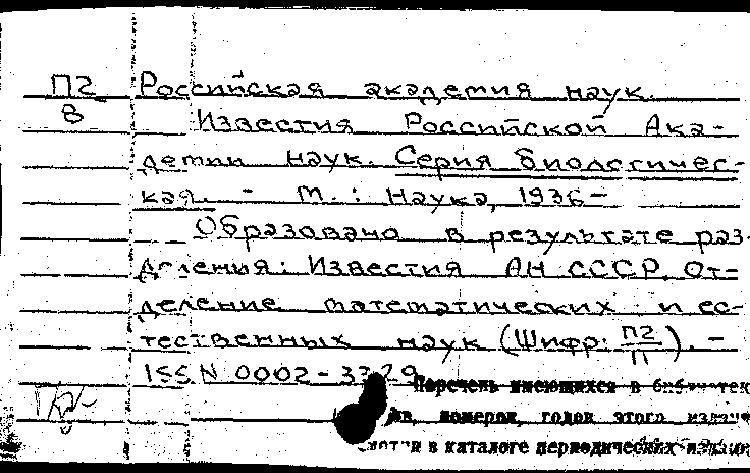 П2
В
Российская академия наук.
Известия Российской Ака-
демии наук. Серия биологичес-
кая. - М.: Наука, 1936-
Образовано в результате раз-
деления: Известия АН СССР. От-
деление математических и ес-
тественных наук (Шифр: П2/П). -
ISSN 0002-3329
Перечень имеющихся в библиотек
номеров, годов этого издан
в каталоге периодических издан